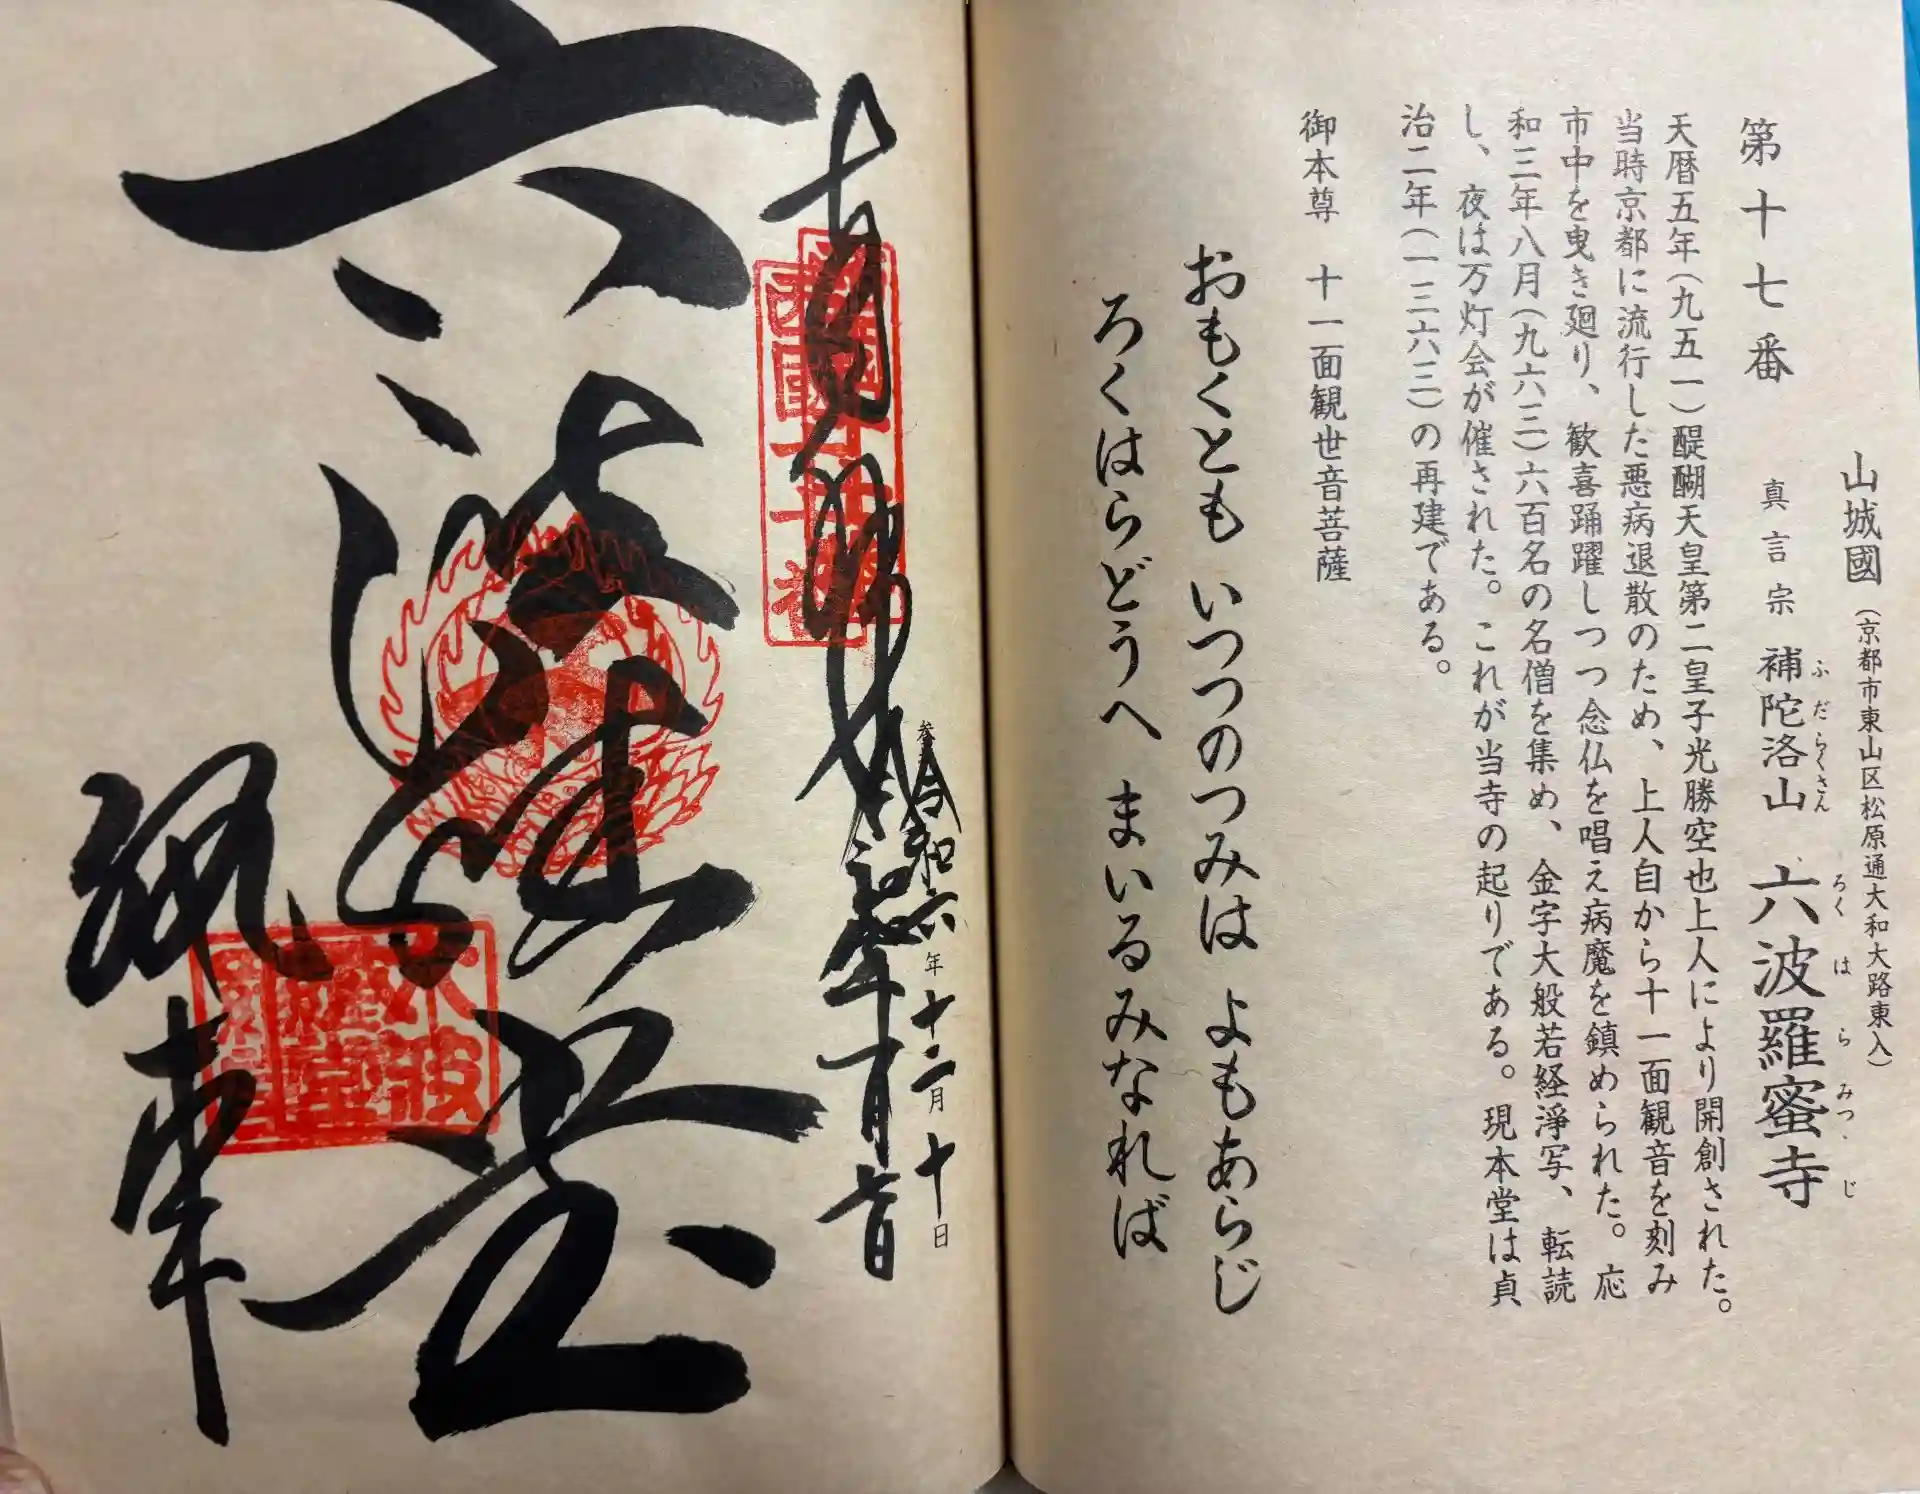 山城國（京都市東山区松原通大和大路東入）
第十七番 真言宗 補陀洛山 六波羅蜜寺
ふだらくさん ろくはらみつ・じ
天暦五年（九五一）醍醐天皇第二皇子光勝空也上人により開創された。
当時京都に流行した悪病退散のため、上人自から十一面観音を刻み
市中を曳き廻り、歓喜踊躍しつつ念仏を唱え病魔を鎮められた。応
和三年八月（九六三）六百名の名僧を集め、金字大般若経浄写、転読
し、夜は万灯会が催された。これが当寺の起りである。現本堂は貞
治二年（一三六三）の再建である。
御本尊 十一面観世音菩薩
おもくとも いつつのつみは よもあらじ
ろくはらどうへ まいるみなれば
奉拝
令和六年十二月十日
六波羅堂